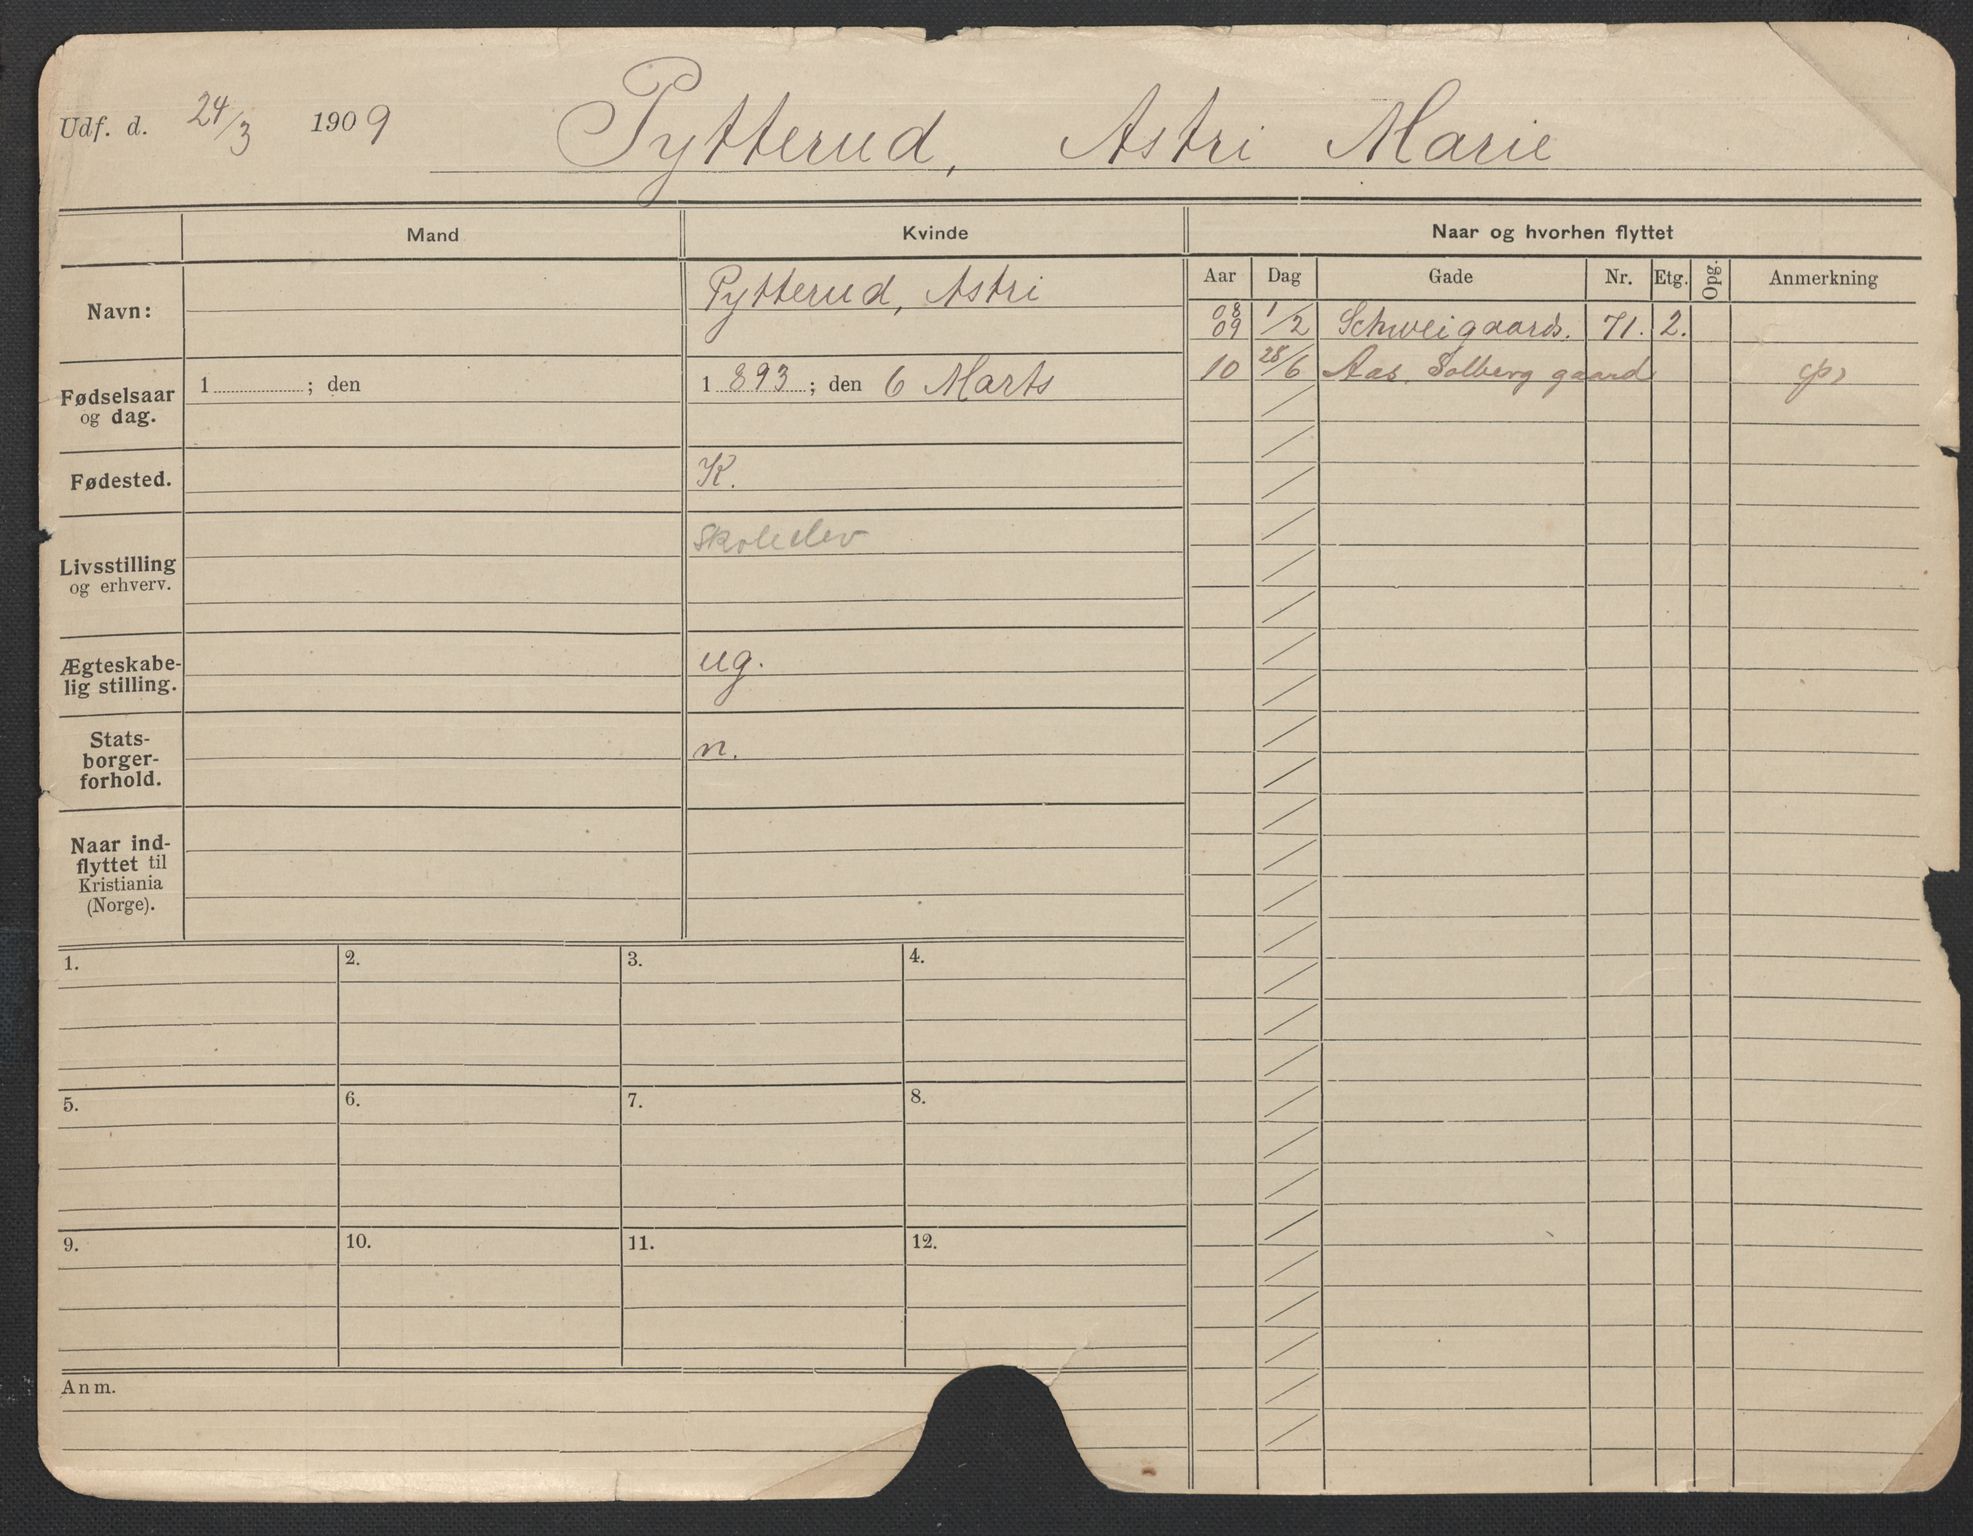 Udf. d. 24/3 1909 Pytterud, Astri Marie
Mand Kvinde Naar og hvorhen flyttet
Aar Dag Gade Nr. Etg. Opg. Anmerkning
Navn: Pytterud, Astri
08
09 1/2 Schweigaards. 71. 2.
10 28/6 Aas. Solberg gaard
Fødselsaar
og dag.
1 ; den
1 893 ; den 6 Marts
Fødested. K.
Livsstilling
og erhverv.
Skoleelev
Ægteskabe-
lig stilling.
ug.
Stats-
borger-
forhold.
n.
Naar ind-
flyttet til
Kristiania
(Norge).
1. 2. 3. 4.
5. 6. 7. 8.
9. 10. 11. 12.
Anm.